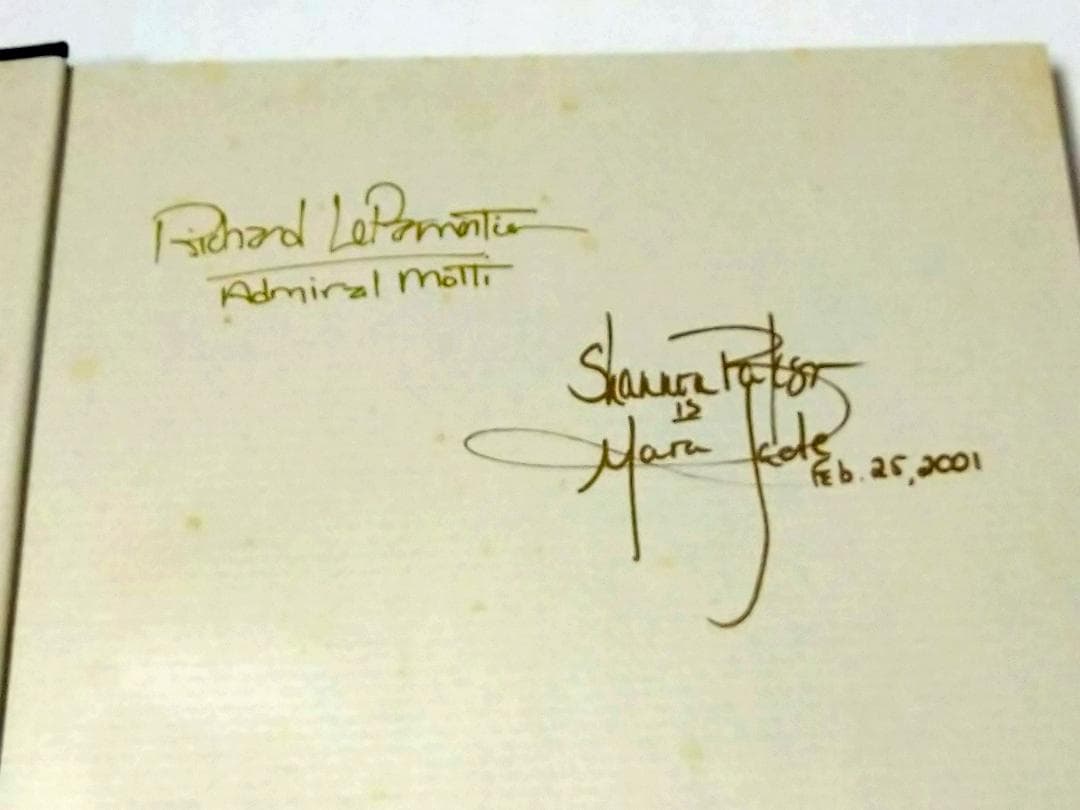 Richard LeParmentier
Admiral Motti
Shannon Baksa
is
Mara Jade
Feb. 25, 2001